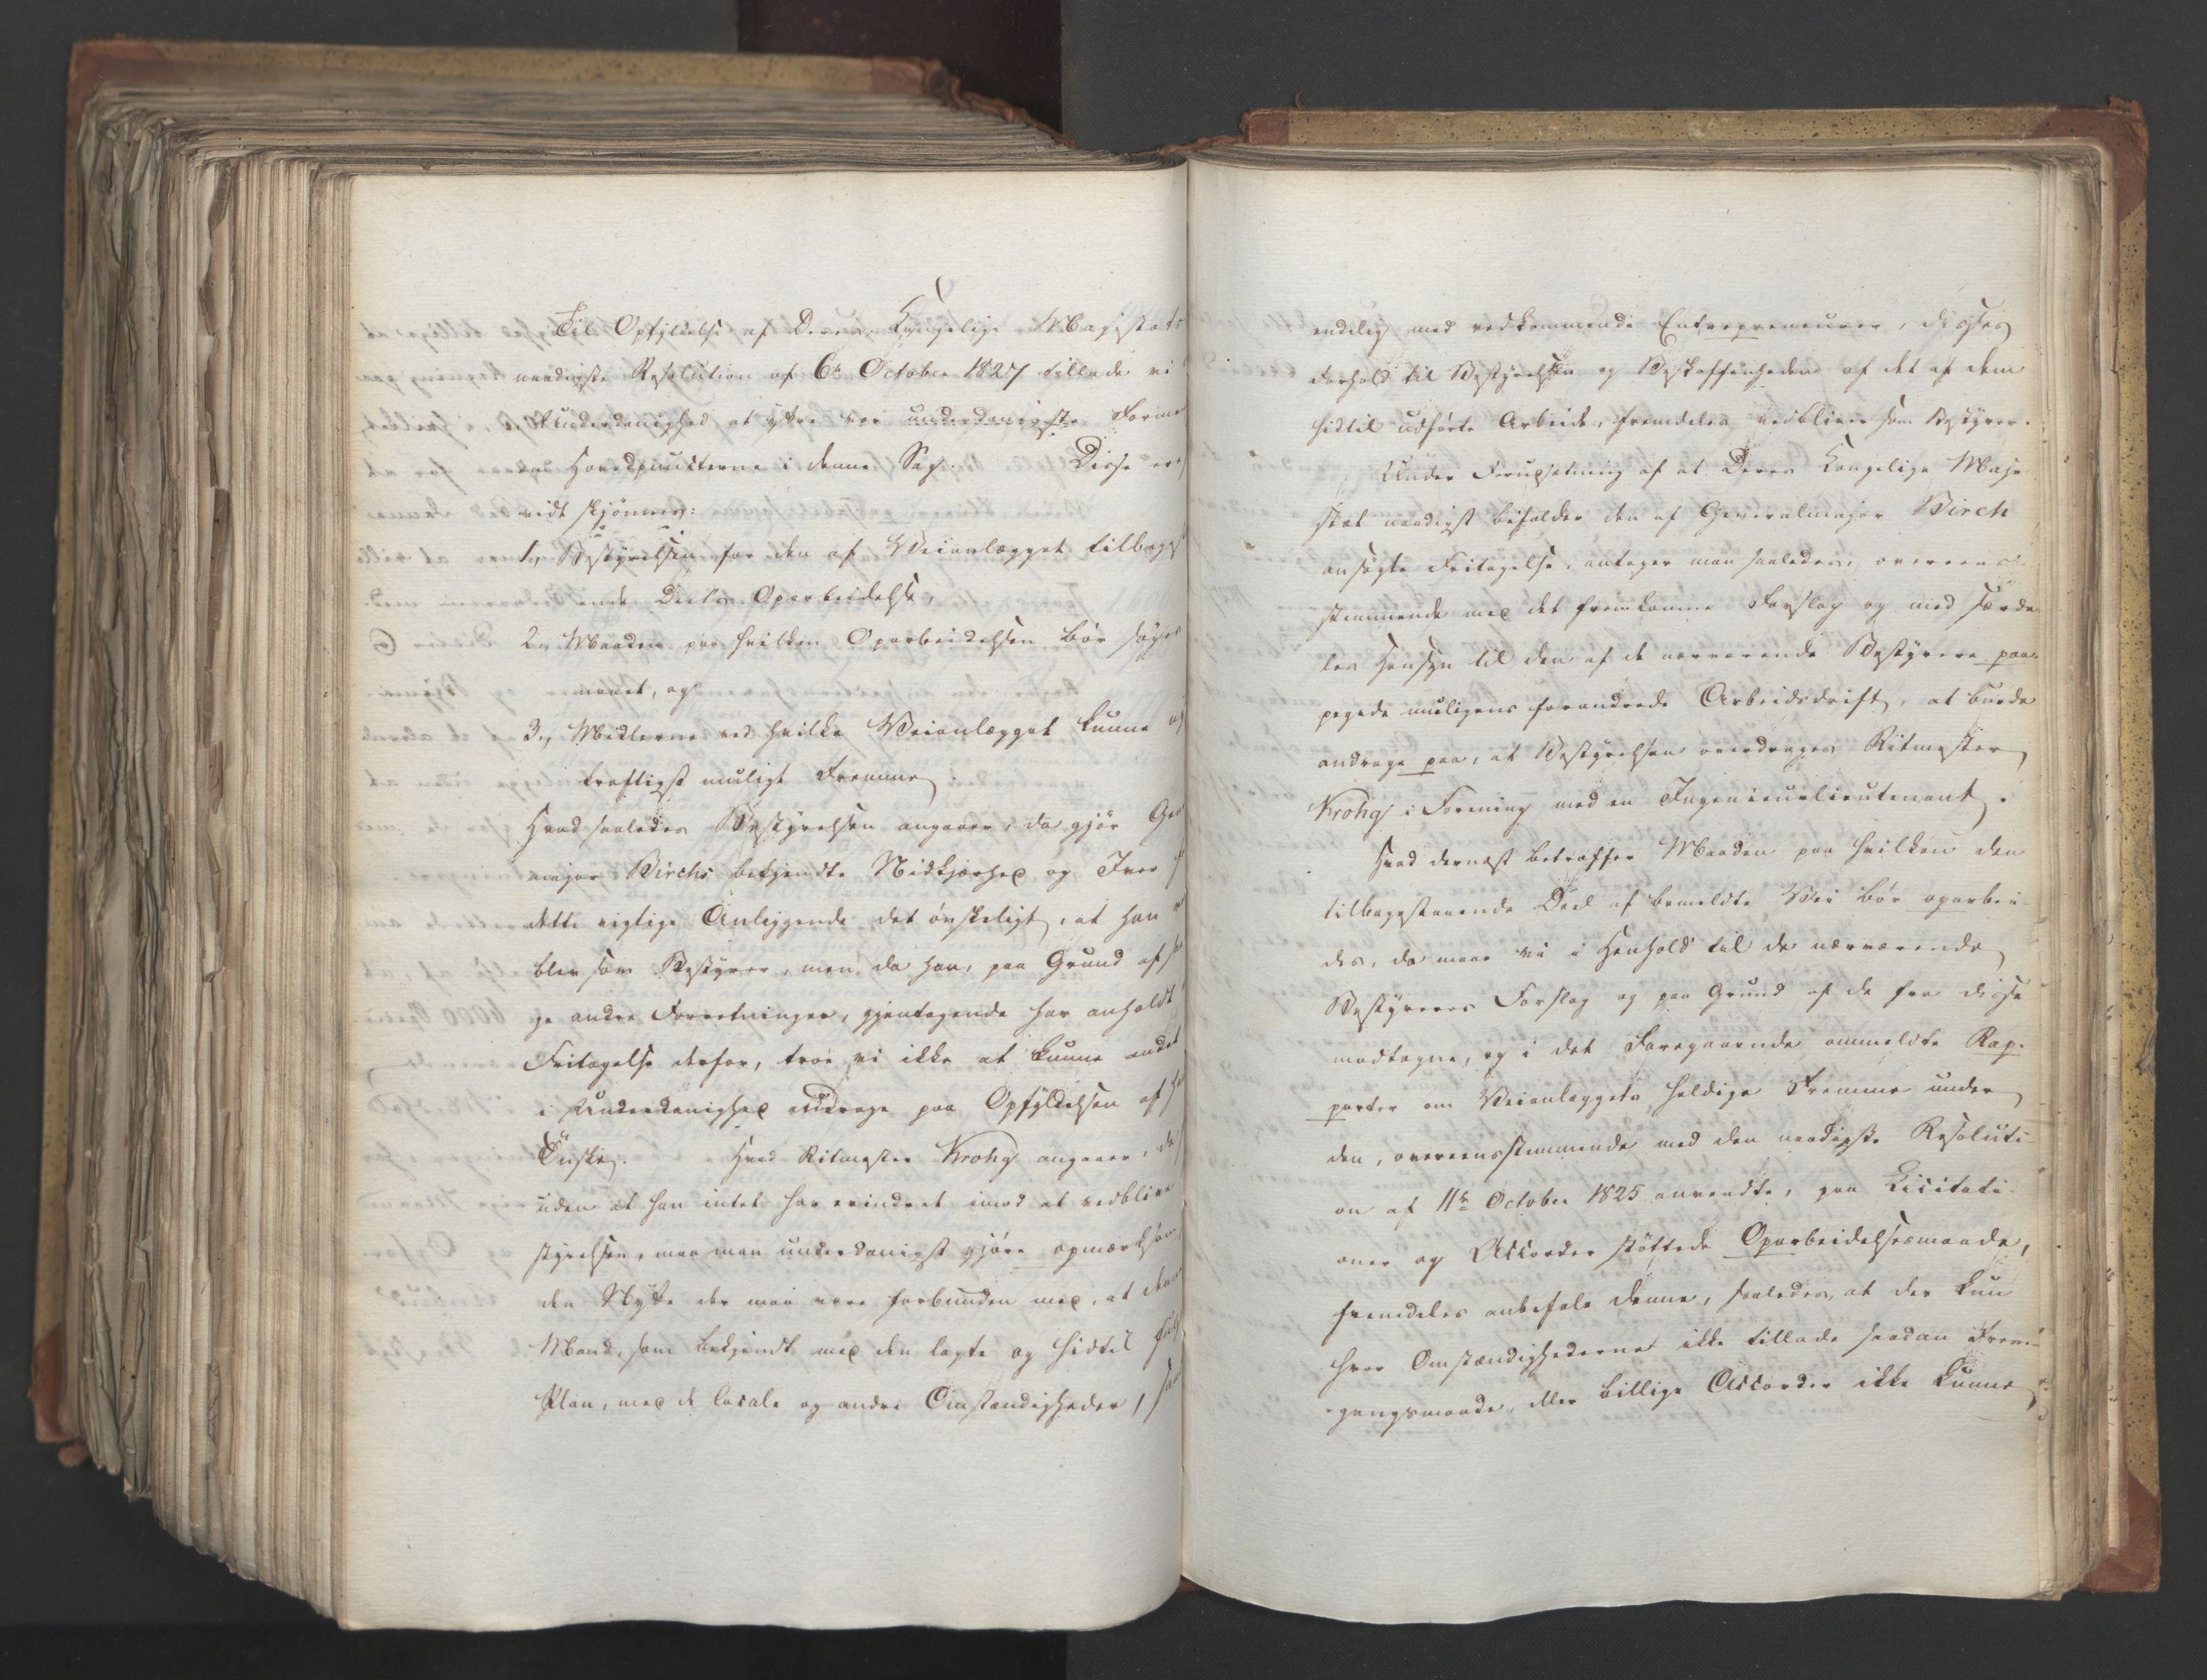 Til Opfyldelse af Deres Kongelige Majestæts
naadigste Resolution af 6te October 1827 tillade vi
Underdanighed at yttre vor underdanigste Forme
om Hovedpuncterne i denne Sag. Disse ere
vidt skjønnes:
1, Bestyrelsen for den af Veianlægget tilbagest
ende Deels Oparbeidelse,
2, Maaden paa hvilken Oparbeidelsen bør søges
mænt, og
3, Midlerne ved hvilke Veianlægget kunne
kraftigst muligt fremmes.
Hvad saaledes Bestyrelsen angaaer, da gjør Gen
major Birchs bekjendte Nidkjærhed og Iver
dette vigtige Anliggende det ønskeligt, at han
blev som Bestyrer, men da han, paa Grund af
ge andre Forretninger, gjentagende har anholdt
Fritagelse derfor, troe vi ikke at kunne andet
i Underdanighed andrage paa Opfyldelsen af
Ønske. Hvad Ritmester Krohg angaaer, da
uden at han intet har erindret imod at vedblive
styrelsen, maa man underdanigst gjøre opmærksom
den Nytte der maa være forbunden med, at denne
Mand, som bekjendt med den lagte og hidtil fulg
Plan, med de locale og andre Omstændigheder,
endelig med vedkommende Entrepreneurer, disses
Forhold til Bestyrelsen og Beskaffenheden af det af dem
hidtil udførte Arbeide, fremdeles vedbliver som Bestyrer.
Under Forudsætning af at Deres Kongelige Maje
stæt naadigst bifalder den af Generalmajor Birch
ansøgte Fritagelse, antager man saaledes, overeens-
stemmende med det fremkomne Forslag og med særde
les Hensyn til den af de nærværende Bestyrere paa-
pegede muligens forandrede Arbeidsdrift, at burde
andrage paa, at Bestyrelsen overdrages Ritmester
Krohg i Forening med en Ingenieurlieutenant.
Hvad dernæst betræffer Maaden paa hvilken den
tilbagestaaende Deel af bemeldte Vei bør oparbei-
des, da maae vi i Henhold til de nærværende
Bestyreres Forslag og paa Grund af de fra disse
modtagne, og i det Foregaaende ommeldte Rap-
porter om Veianlæggets heldige Fremme under
den, overeensstemmende med den naadigste Resoluti-
on af 11te October 1825 anvendte, paa Licitati-
oner og Accorder støttede Oparbeidelsesmaade,
fremdeles anbefale denne, saaledes, at der kun
hvor Omstændighederne ikke tillade saadan Frem-
gangsmaade eller billige Accorder ikke kunne